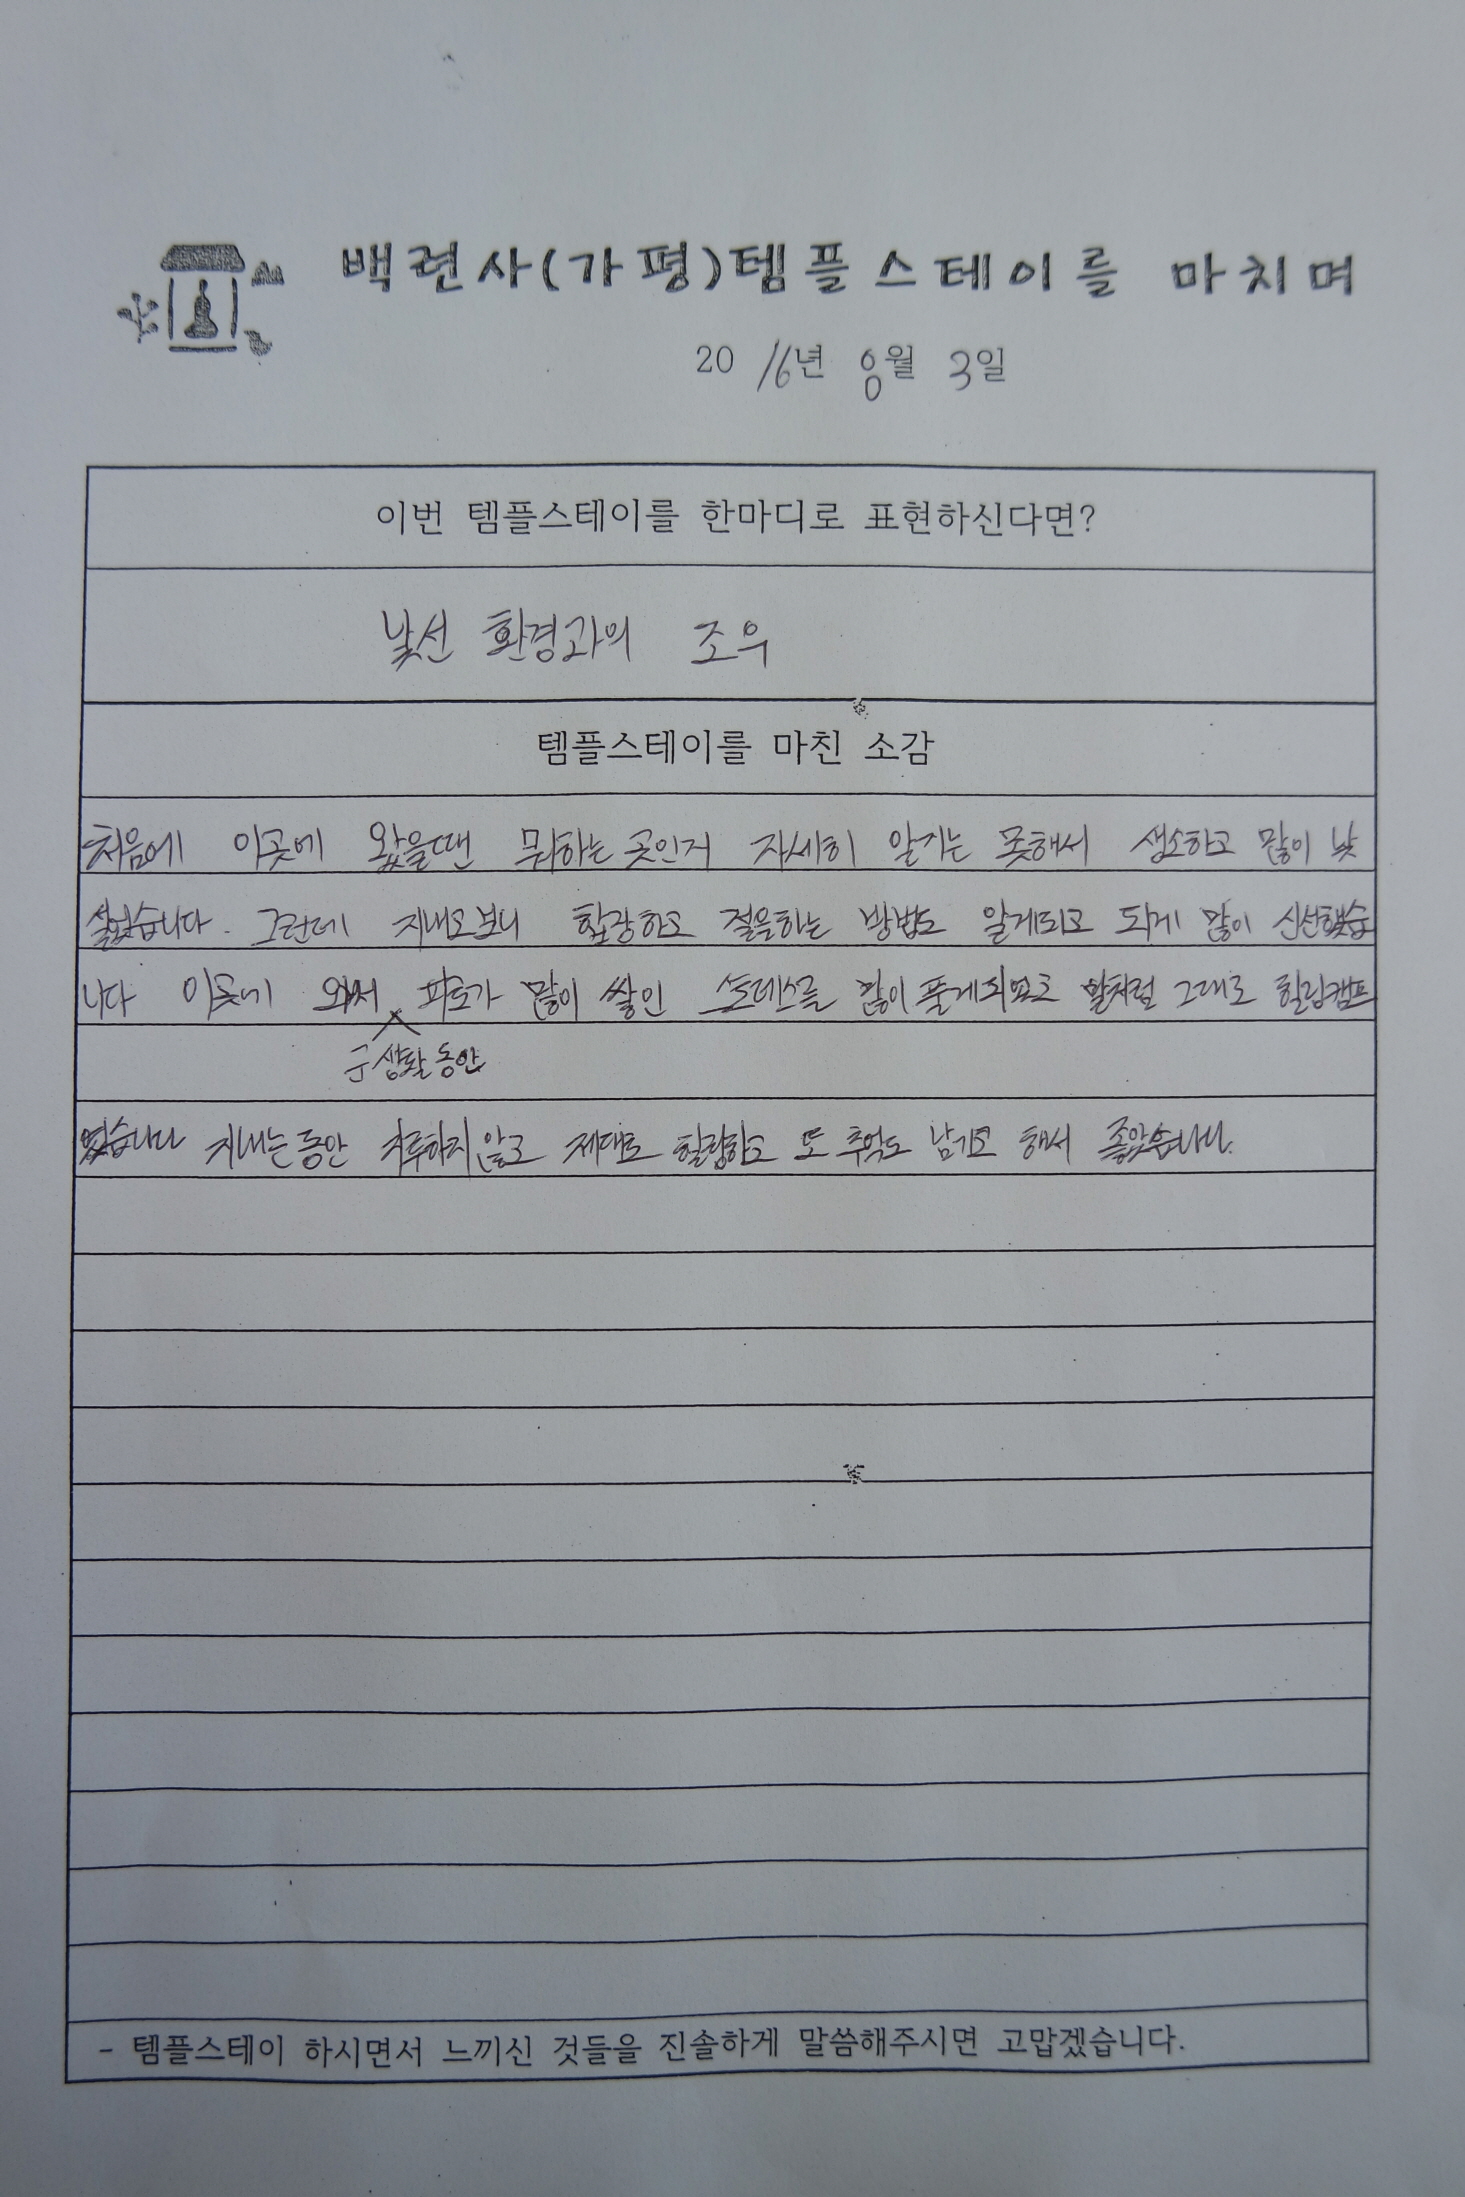 백련사(가평)템플스테이를 마치며
2016년 8월 3일
이번 템플스테이를 한마디로 표현하신다면?
낯선 환경과의 조우
템플스테이를 마친 소감
처음에 이곳에 왔을때 뭐하는 곳인지 자세히 알지는 못해서 생소하고 많이 낯
설었습니다. 그런데 지내고보니 합장하고 절을하는 방법도 알게되고 되게 많이 신선했습
니다 이곳에 와서 피로가 많이 쌓인 스트레스를 많이 풀게되었고 말처럼 그대로 힐링캠프
군생활동안
였습니다 지내는동안 지루하지 않고 제대로 힐링하고 또 추억도 남기고 해서 좋았습니다.
- 템플스테이 하시면서 느끼신 것들을 진솔하게 말씀해주시면 고맙겠습니다.